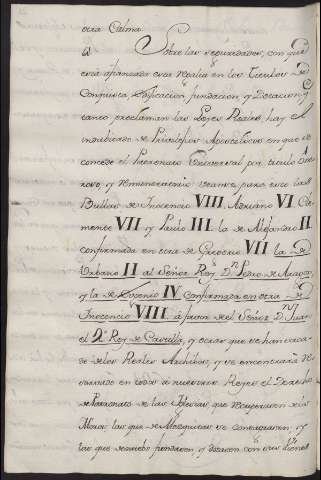 otra Calma.
Sobre las seguridades, con que
está afianzada esta Regalia en los titulos de
Conquista, Edificacion, fundacion, y Dotacion, q.e
tanto proclaman las Leyes Reales, hay el
indubitado de Privilegios Apostolicos en que se
concede el Patronato Universal por titulo One
roso y remuneratorio veanse para esto las
Bullas de Inocencio VIII. Adriano VI. Cle
mente VII. y Paulo III. la de Alejandro II
confirmada en otra de Gregorio VII. la de
Urbano II al Señor Rey D.n Pedro de Aragon,
y la de Eugenio IV confirmada en otra de
Inocencio VIII. à favor del Señor D.n Juan
el 2.º Rey de Castilla, y otras que se han sacado
de los Reales Archibos, y se encontrará re
servado en todos à nuestros Reyes el Derecho
de Patronato de las Iglesias que recuperasen de los
Moros las que de Mezquitas se consagrasen, y
las que de nuebo fundasen, y dotasen con sus bienes